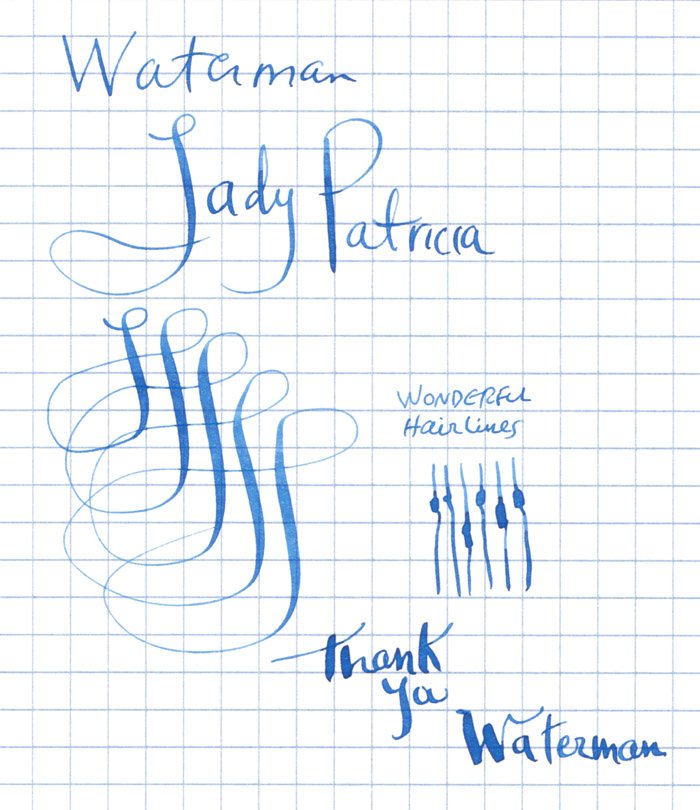 Waterman
Lady Patricia
WONDERFUL
Hairlines
Thank
Ya
Waterman